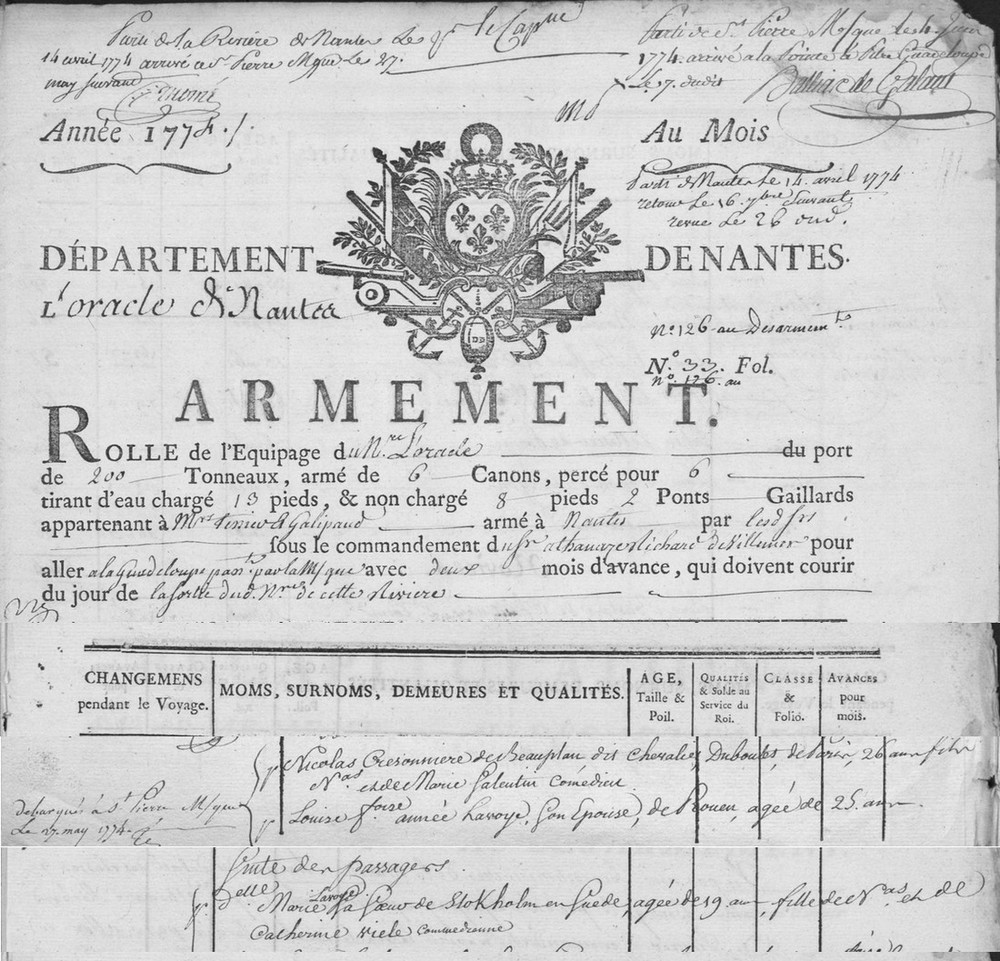 Parti de la Rivière de Nantes Le
14 avril 1774 arrivé a St Pierre Mque le 27.
may suivant
Parti de St Pierre Mque les 4 Juin
1774. arrivé a la Pointe a Pitre Guadeloupe
Le 7. dudit
Année 1774.
Au Mois
Parti de Nantes Le 14. avril 1774
retour Le 16. 7bre Suivant
revue Le 26 dud.
DÉPARTEMENT DE NANTES.
L'oracle de Nantes
No 126 au Desarmemt
No. 33. Fol.
no. 126. au
ARMEMENT.
ROLLE de l'Equipage du Nre L'oracle du port
de 200 Tonneaux, armé de 6 Canons, percé pour 6
tirant d'eau chargé 13 pieds, & non chargé 8 pieds 2 Ponts Gaillards
appartenant à Mrs & Galipaud armé à Nantes par lesd srs
sous le commandement du Sr athanaze Richard de Villeneur pour
aller a la Guadeloupe passt par la Mque avec deux mois d'avance, qui doivent courir
du jour de la sortie dud. Nre de cette Riviere
CHANGEMENS
pendant le Voyage.
MOMS, SURNOMS, DEMEURES ET QUALITÉS.
AGE,
Taille &
Poil.
QUALITÉS
& Solde au
Service du
Roi.
CLASSE
&
Folio.
AVANCES
pour
mois.
Nicolas Cresonniere de Beauplan dit Chevalier Duboulet, de Paris, 26 ans fils
Nas et de Marie Galentin Comédien
debarqués à St Pierre Mque
Le 27. may 1774.
Louise foise année Lavoye, Son Epouse, de Rouen, agée de 25. ans
Suite des passagers
delle Marie Lavoye Sa Soeur de Stokholm en Suede, agée de 19 ans, fille de Nas et de
Catherine viele Commedienne